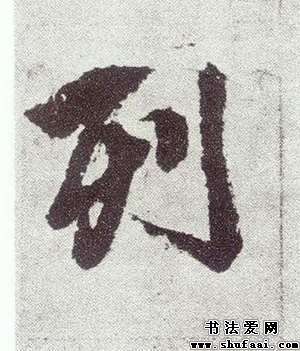 列
书法爱网
www.shufaai.com